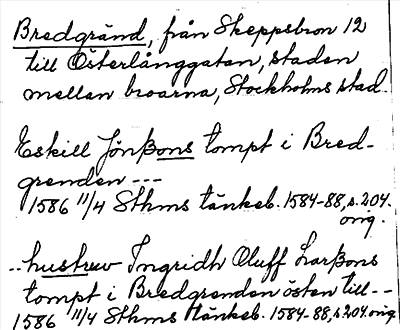 Bredgränd, från Skeppsbron 12
till Österlånggatan, staden
mellan broarna, Stockholms stad.
Eskill Jönßons tompt i Bred-
grenden ---
1586 11/4 Sthms tänkeb. 1584-88, s. 204.
orig.
.. hustrw Ingridh Oluff Larßons
tompt i Bredgrenden östen till --
1586 11/4 Sthms tänkeb. 1584-88, s. 204. orig.